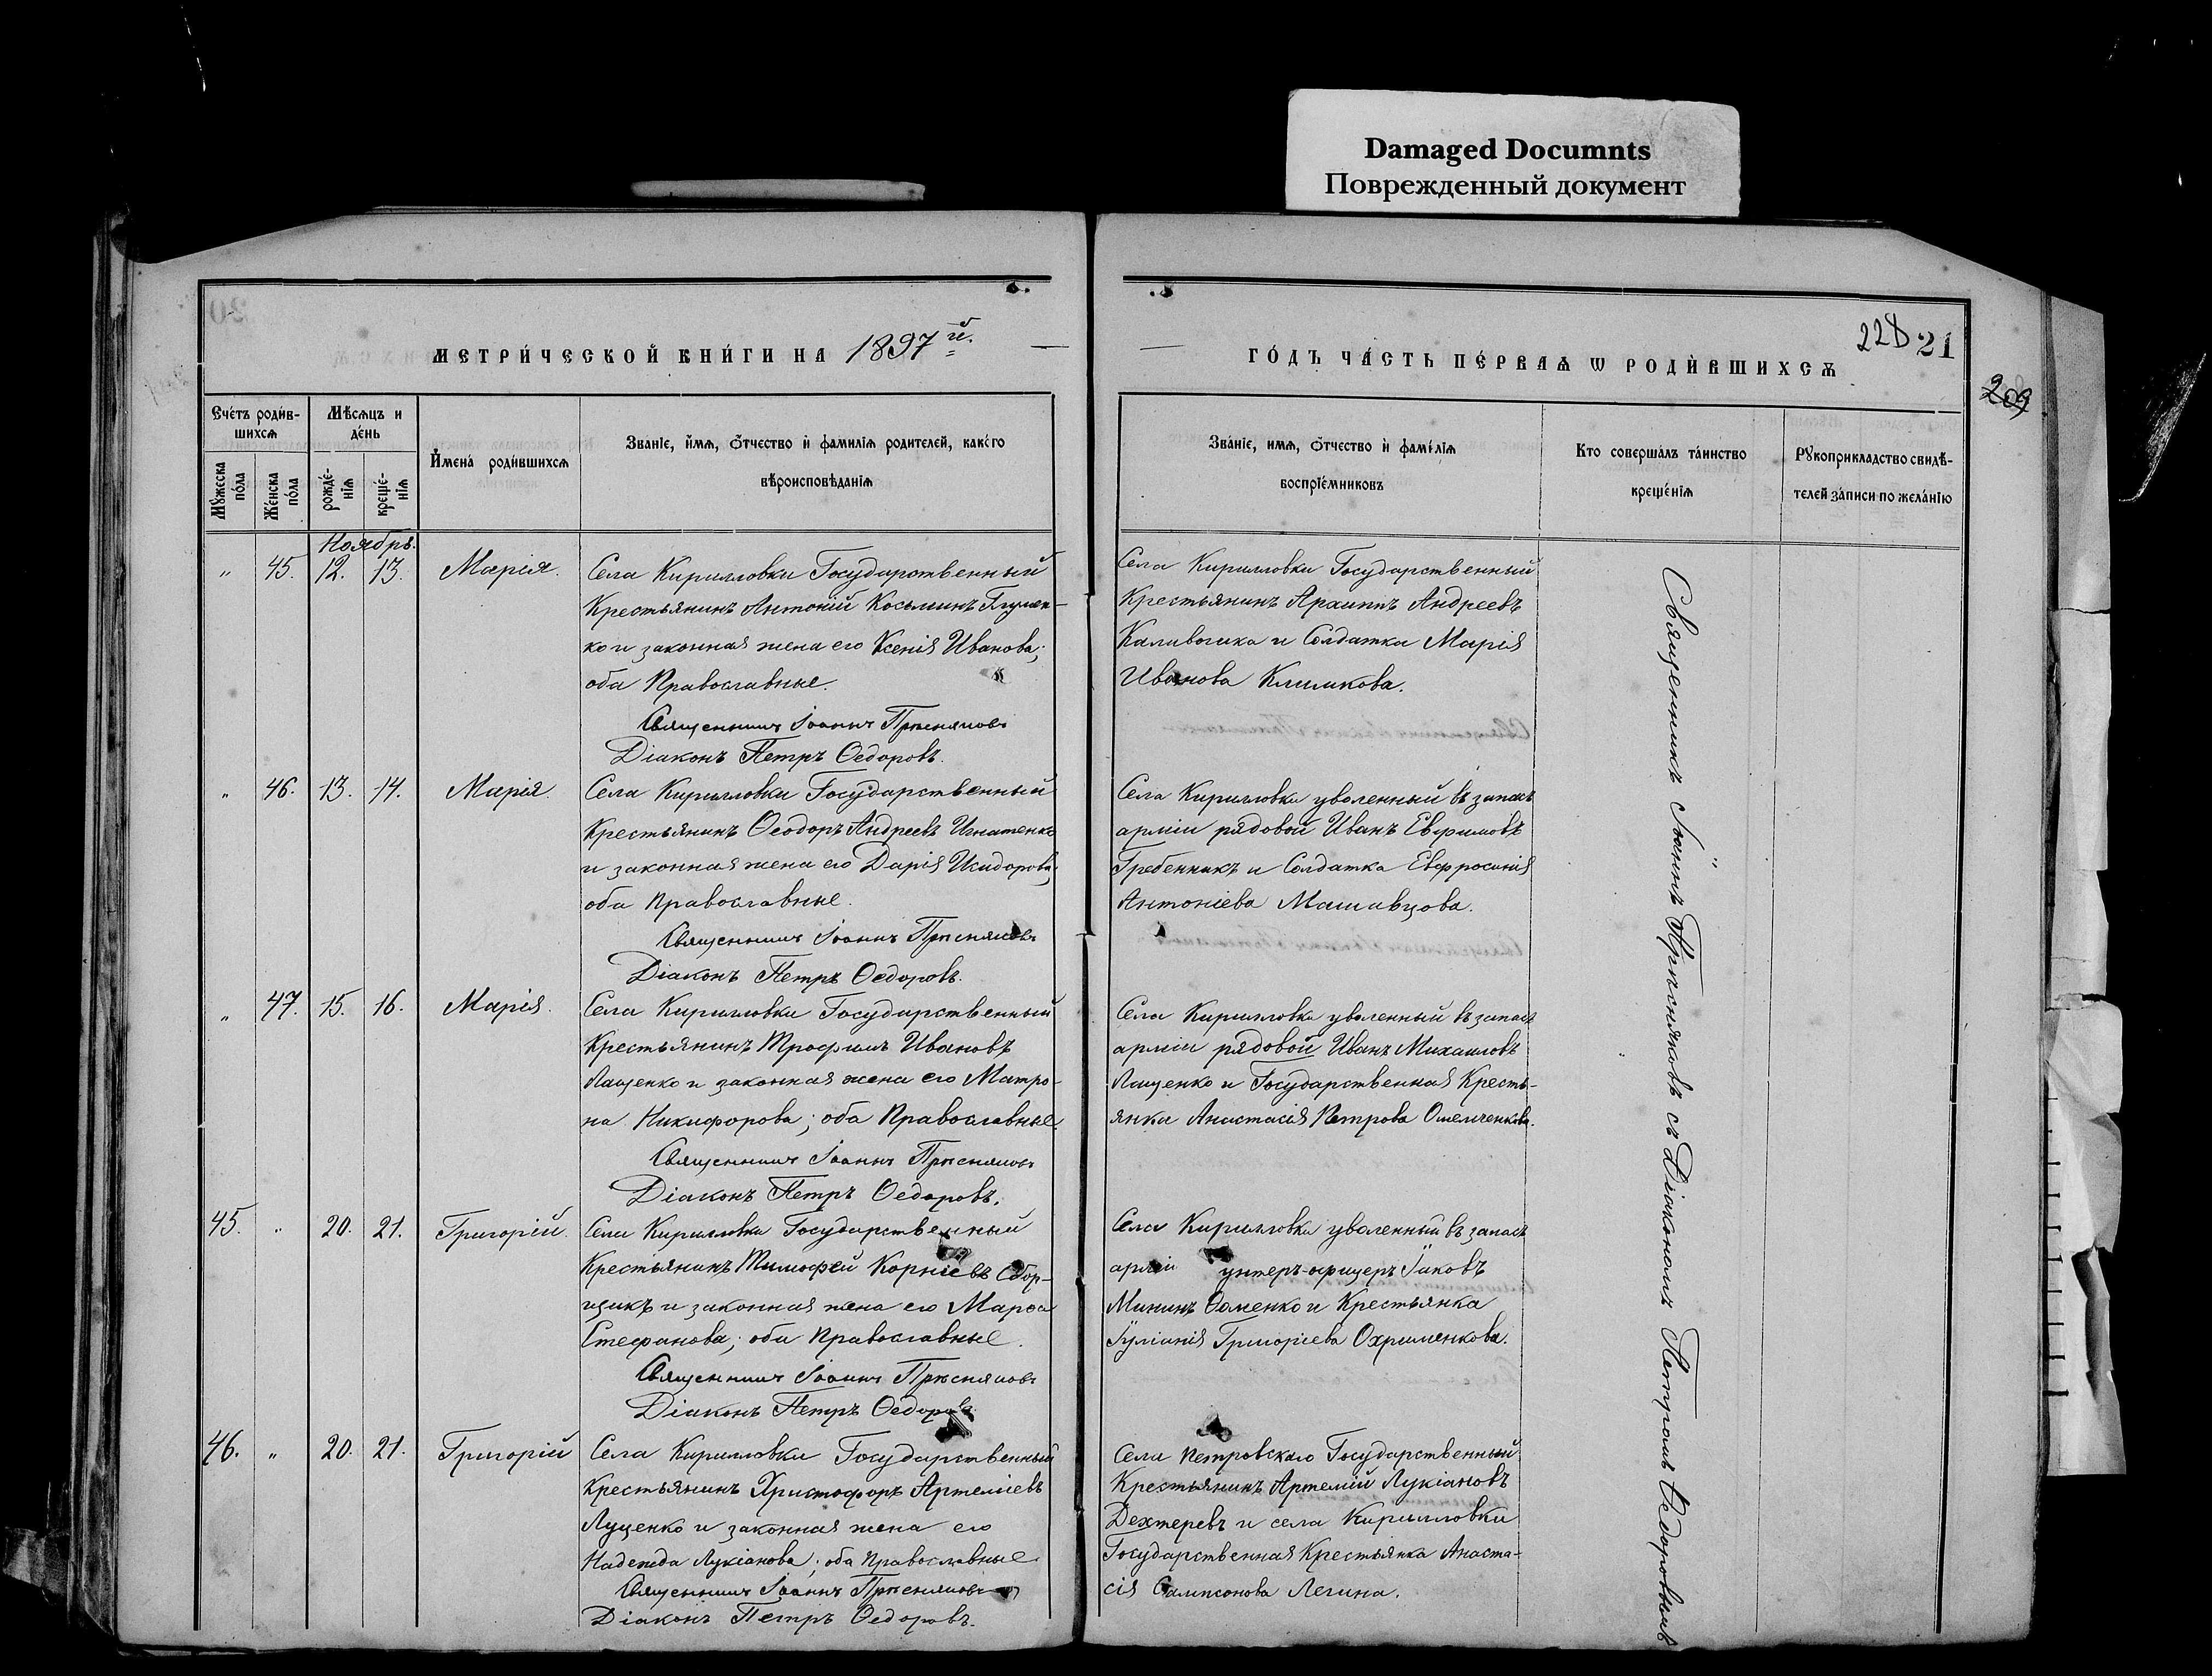 Damaged Documnts
Поврежденный документ
МЕТРИ́ЧЕСКОЙ КНИ́ГИ НА 1897й.
ГО́ДЪ ЧА́СТЬ ПЕ́РВАѦ Ѡ РОДИ́ВШИХСѦ
228 21
209
Счéтъ роди́в-
шихсѧ
Мѣсѧцъ и
дéнь
Мꙋжеска
пóла
Жéнска
пóла
рождé-
нїѧ
крещé-
нїѧ
Именá роди́вшихсѧ
Званїе, имѧ, ѻтчество и фамилїѧ родителей, какóго
вѣроисповѣданїѧ
Звáнїе, имѧ, ѻтчество и фамилїѧ
воспрїéмниковъ
Кто совершáлъ тáинство
крещéнїѧ
Рꙋкоприкладство свидѣ-
телей зáписи по желáнїю
Ноябрь.
" 45. 12. 13. Марія.
Села Кирилловки Государственный
Крестьянинъ Антоній Косьминъ
ко и законная жена его Ксенія Иванова;
оба Православные.
Священникъ Іоаннъ Прѣсняковъ
Діаконъ Петръ Ѳедоровъ.
Села Кирилловки Государственный
Крестьянинъ Архиппъ Андреевъ
и Солдатка Марія
Иванова Климкова.
" 46. 13. 14. Марія.
Села Кирилловки Государственный
Крестьянинъ Ѳеодоръ Андреевъ Игнатенко
и законная жена его Дарія Исидорова;
оба Православные.
Священникъ Іоаннъ Прѣсняковъ
Діаконъ Петръ Ѳедоровъ.
Села Кирилловки уволенный въ запасъ
арміи рядовой Иванъ Евфимовъ
Гребенникъ и Солдатка Евфросинія
Антоніева
" 47. 15. 16. Марія.
Села Кирилловки Государственный
Крестьянинъ Трофимъ Ивановъ
Лащенко и законная жена его Матро-
на Никифорова; оба Православные.
Священникъ Іоаннъ Прѣсняковъ
Діаконъ Петръ Ѳедоровъ.
Села Кирилловки уволенный въ запасъ
арміи рядовой Иванъ Михаиловъ
Лащенко и Государственная Кресть-
янка Анастасія Петрова Омельченкова.
45. " 20. 21. Григорій.
Села Кирилловки Государственный
Крестьянинъ Тимофей Корніевъ Сбор-
щикъ и законная жена его Марѳа
Стефанова; оба Православные.
Священникъ Іоаннъ Прѣсняковъ
Діаконъ Петръ Ѳедоровъ.
Села Кирилловки уволенный въ запасъ
арміи унтеръ-офицеръ Іаковъ
Мининъ Ѳоменко и Крестьянка
Іуліанія Григоріева Охрименкова.
46. " 20. 21. Григорій
Села Кирилловки Государственный
Крестьянинъ Христофоръ Артеміевъ
Луценко и законная жена его
Надежда Лукіанова; оба Православные.
Священникъ Іоаннъ Прѣсняковъ
Діаконъ Петръ Ѳедоровъ.
Села Петровскаго Государственный
Крестьянинъ Артемій Лукіановъ
Дехтеревъ и села Кирилловки
Государственная Крестьянка Анаста-
сія Сампсонова Легина.
Священникъ Іоаннъ Прѣсняковъ съ Діакономъ Петромъ Ѳедоровымъ